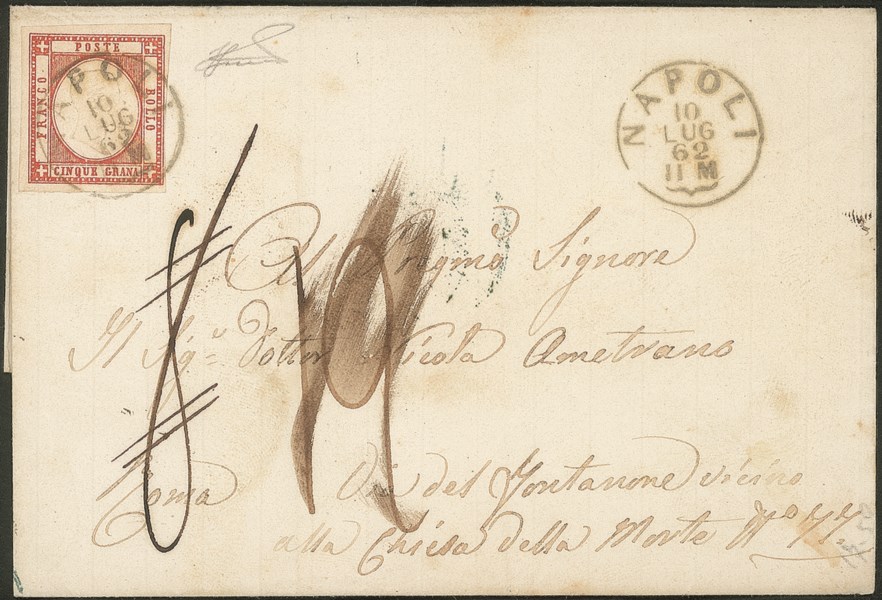 POSTE
FRANCO
BOLLO
CINQUE GRANA
NAPOLI
10
LUG
62
11 M
NAPOLI
10
LUG
62
11 M
8
19
Al Pregmo Signore
Il Sigr Dottor Nicola Ametrano
Via del Fontanone vicino
Roma
alla Chiesa della Morte No 77